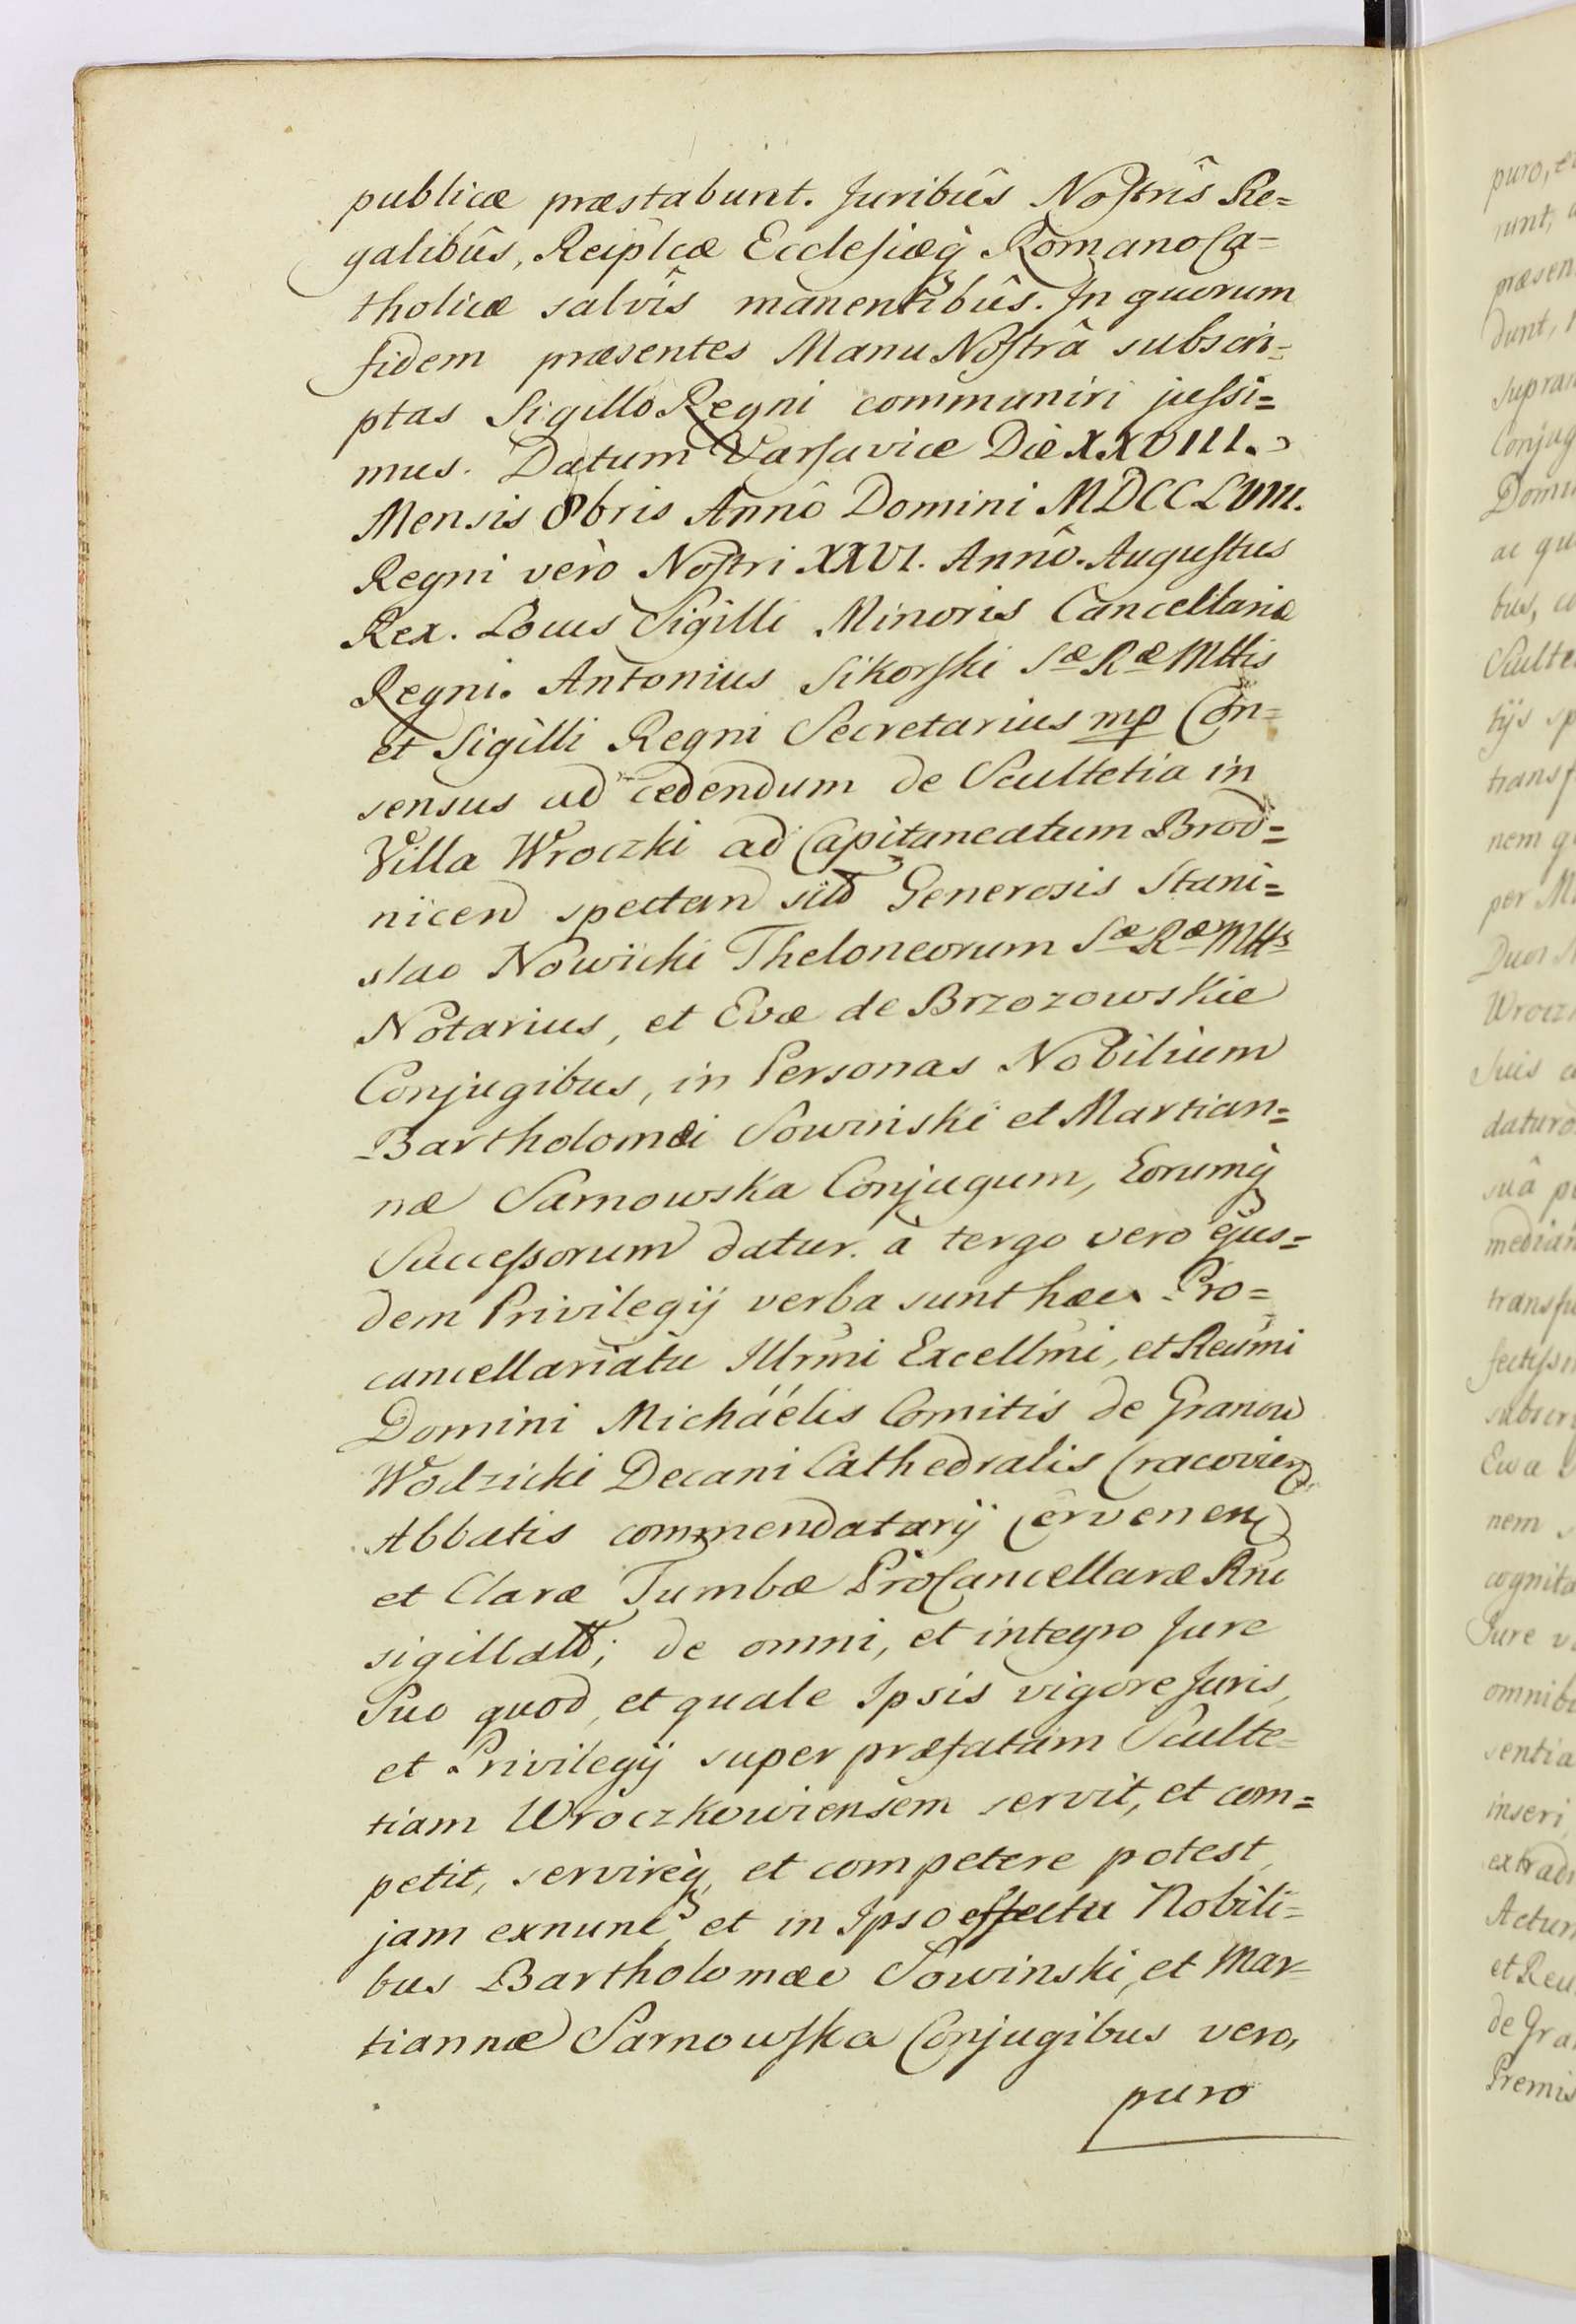 publicæ præstabunt. Juribûs Nostrîs Re=
galibûs, Reiplcæ Ecclesiæq̀ Romano Ca=
tholicæ salvîs manentibûs. In quorum
fidem præsentes Manu Nostrâ subscri=
ptas Sigillo Regni communiri jussi=
mus. Datum Varsaviæ Die XXVIII.
Mensis 8bris Annô Domini MDCCLVIII.
Regni verò Nostri XXVI. Annô. Augustus
Rex. Locus Sigilli Minoris Cancellariæ
Regni. Antonius Sikorski Sæ Ræ Mttis
et Sigilli Regni Secretarius mp Con=
sensus ad cedendum de Scultetia in
Villa Wroczki ad Capitaneatum Brod=
nicen spectan sitt Generosis Stani=
slao Nowicki Theloneorum Sæ Ræ Mtts
Notarius, et Evæ de Brzozowskie
Conjugibus, in Personas Nobilium
Bartholomæi Sowinski et Martian=
næ Sarnowska Conjugum, Eorumq̀
Successorum datur. à tergo vero ejus=
dem Privilegij verba sunt hæc Pro=
cancellariatu Illrmi Excellmi, et Reumi
Domini Micháélis Comitis de Granow
Wodzicki Decani Cathedralis Cracovien
Abbatis commendatarij Cervenen
et Claræ Tumbæ ProCancellaræ Rni
sigillatt; de omni, et integro Jure
Suo quod, et quale Ipsis vigore Juris,
et Privilegij super præfatam Sculte=
tiam Wroczkowiensem servit, et com=
petit, servireq̀, et competere potest,
jam exnunc, et in Ipso effectu Nobili=
bus Bartholomæo Sowinski, et Mar=
tiannæ Sarnowska Conjugibus vero,
puro
puro, e
runt,
præsen
dunt,
supra
Conjug
Domi
ac qu
bus, co
Sculte
tijs sp
transf
nem q
per M
Duos
Wrocz
Suis
daturo
suâ p
median
transfu
fectissi
subscr
Ewa
nem
cognita
Jure v
omnib
sentia
inseri
extradi
Actum
et Reu
de Gra
Premis